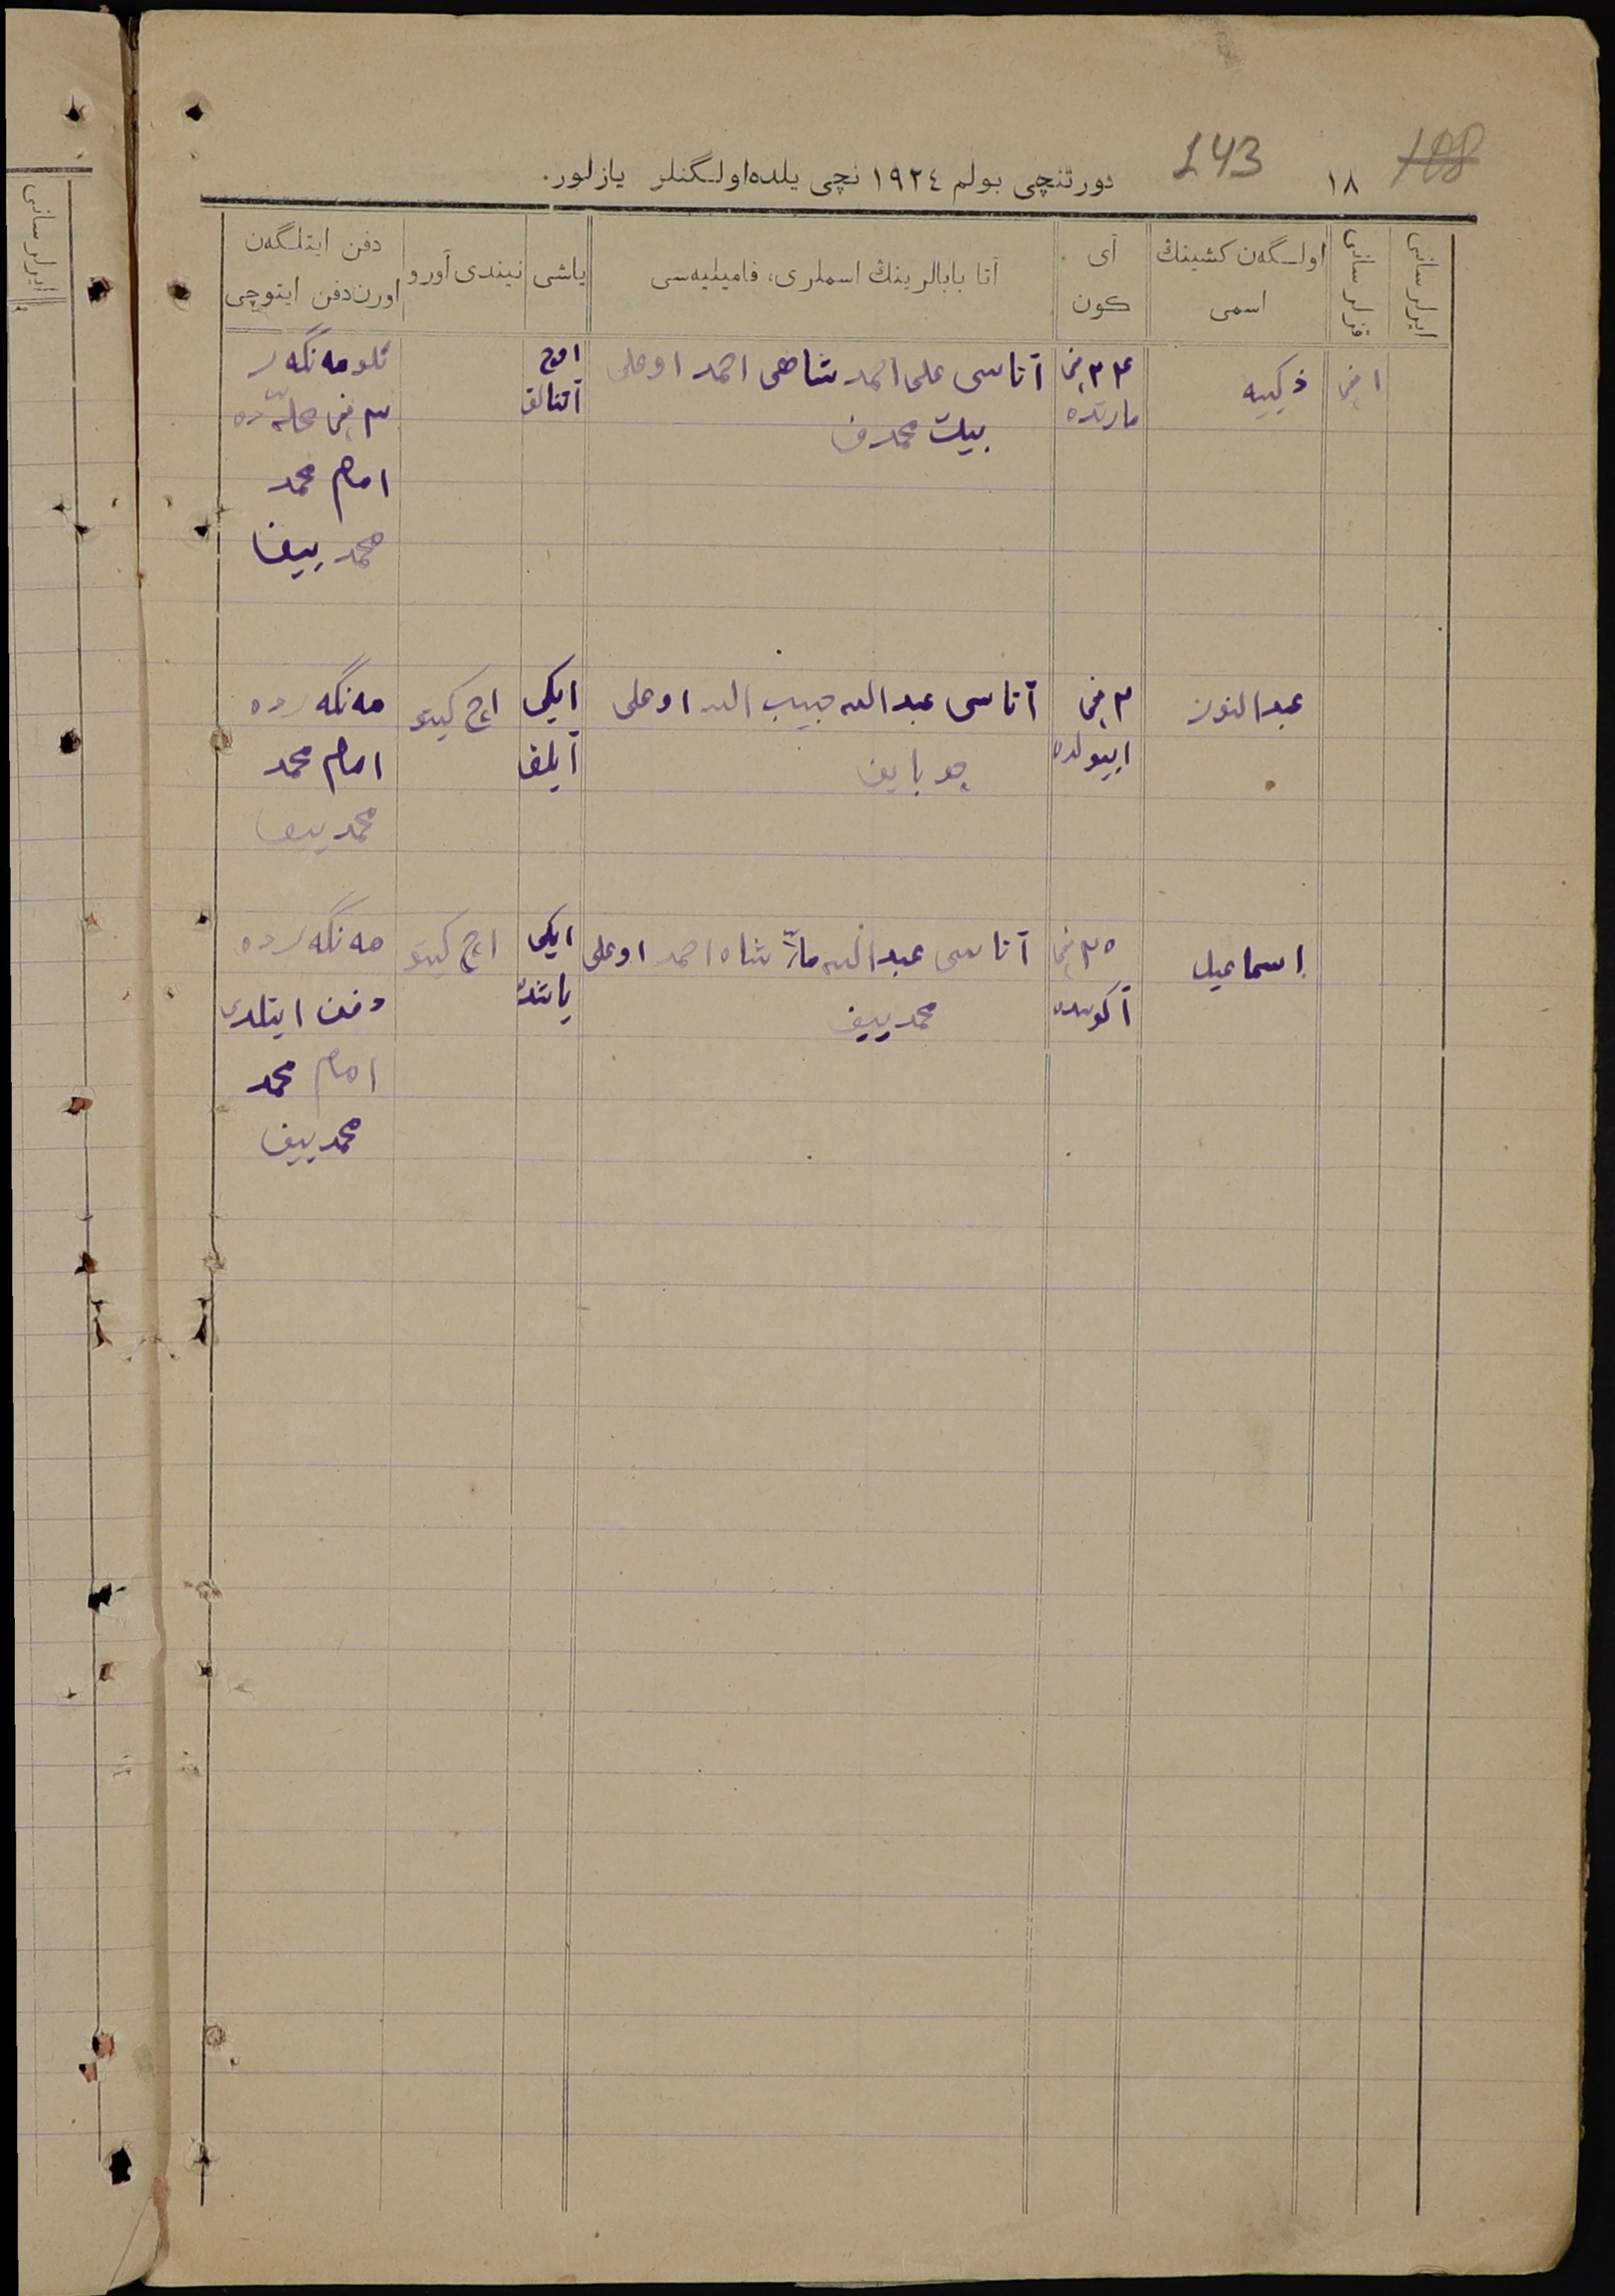 108
١٨
143
دورتنچی بولم ١٩٢٤ نچی یلده اولـگنلر یازلور.
ایرلر سانی
قزلر سانی
اولـگەن کشینڭ اسمی
آی کون
آتا بابالرینڭ اسملری، فامیلیه‌سی
یاشی
نیندی آورو
دفن ایتلـگەن اورن دفن ایتوچی
١ نچی
ذکییه
٢٤ نچی
مارتده
آتاسی علی احمد شاهی احمد اوغلی
بیك محمدف
اوچ
آتنالق
تلومەنگەر
٣ نچی محله‌ده
امام محمد
محمدییف
عبدالنور
٢ نچی
اییولده
آتاسی عبدالله حبیب الله اوغلی
چوباییف
ایکی
آیلق
اچ کیتو
مەنگەرده
امام محمد
محمدییف
اسماعیل
٢٥ نچی
آتاسی عبدالله شاه احمد اوغلی
محمدییف
ایکی
یاشده
اچ کیتو
مەنگەرده
دفن ایتلدی
امام محمد
محمدییف
ایرلر سانی